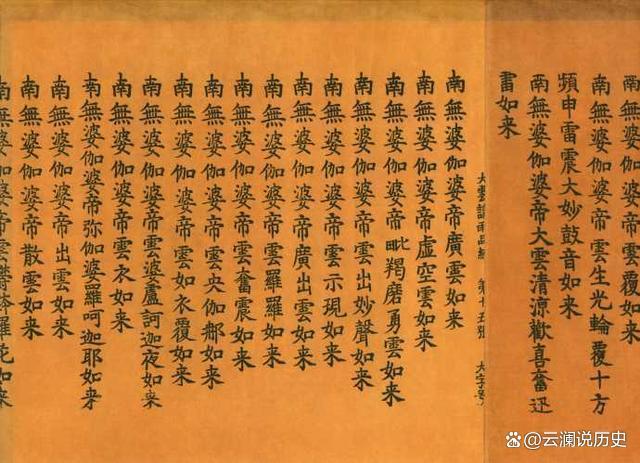 南無婆伽婆帝雲覆如来
南無婆伽婆帝雲生光輪覆十方
頻申雷震大妙鼓音如来
南無婆伽婆帝大雲清涼歡喜奮迅
雷如来
大雲請雨品經 第十五張 大字号
南無婆伽婆帝廣雲如来
南無婆伽婆帝虛空雲如来
南無婆伽婆帝毗比羯磨勇雲如来
南無婆伽婆帝雲出妙聲如来
南無婆伽婆帝雲示現如来
南無婆伽婆帝廣出雲如来
南無婆伽婆帝雲羅羅如来
南無婆伽婆帝雲奮震如来
南無婆伽婆帝雲央伽那如来
南無婆伽婆帝雲如衣覆如来
南無婆伽婆帝雲婆盧訶迦夜如来
南無婆伽婆帝雲衣如来
南無婆伽婆帝弥伽婆羅呵迦耶如来
南無婆伽婆帝出雲如来
南無婆伽婆帝散雲如来
南無婆伽婆帝雲羅如来
@云澜说历史